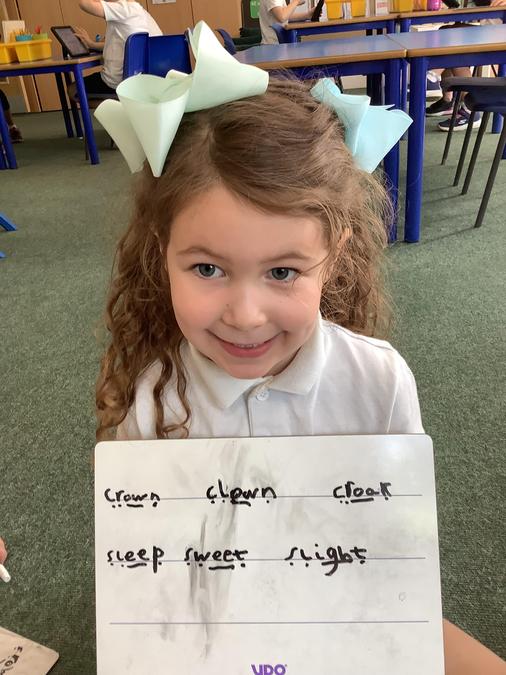 crown clown cloak
sleep sweet slight
YPO